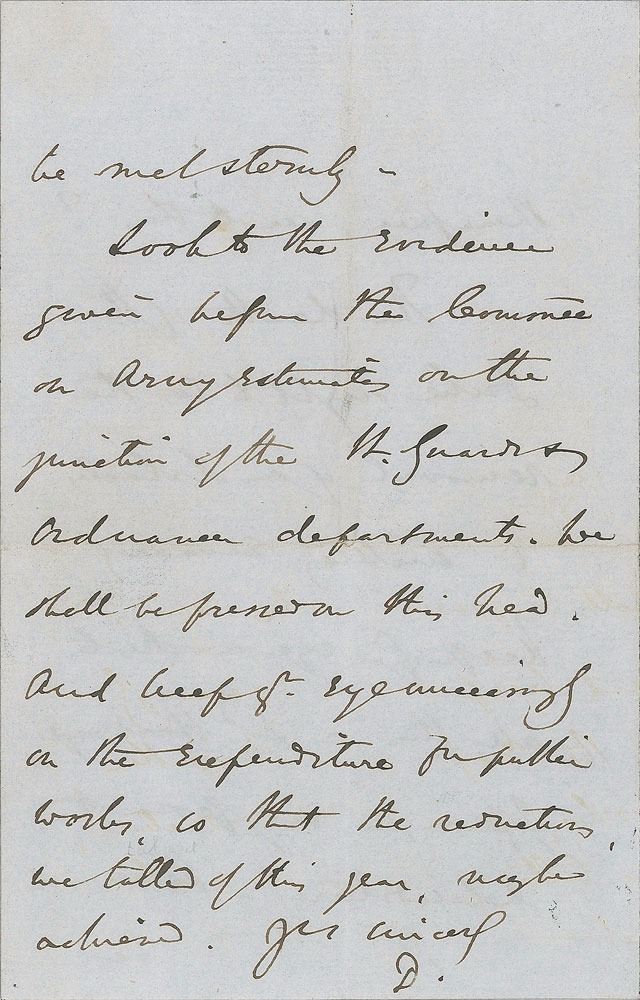 be met sternly -
Look to the evidence
given before the Committee
on Army Estimates on the
junction of the H. Guards &
Ordnance departments. We
shall be pressed on this head.
And keep yr. eye unceasingly
on the Expenditure for public
works, so that the reductions,
we talked of this year, may be
achieved. Yrs sincerely
D.